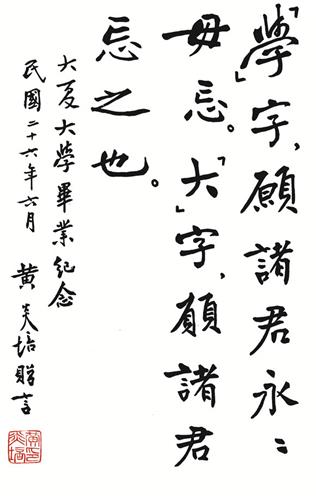 「學」字，願諸君永〻
毋忘。「大」字，願諸君
忘之也。
大夏大學畢業紀念
民國二十六年六月 黃炎培贈言